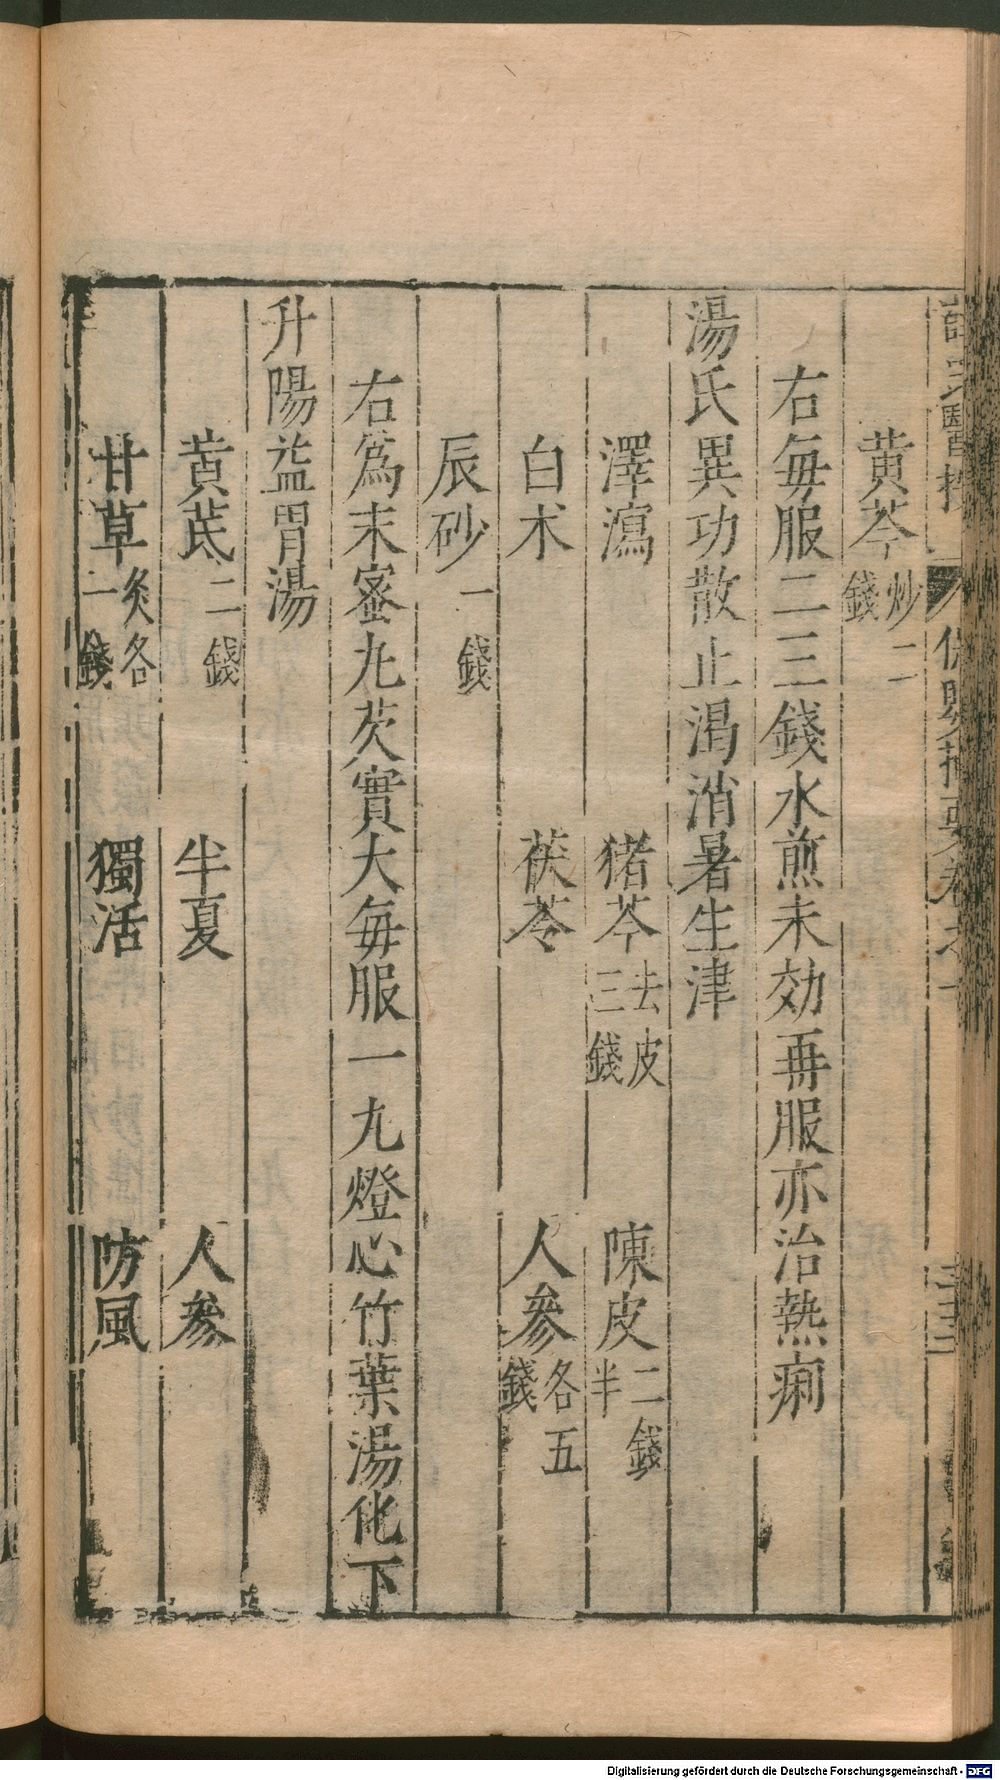 黄芩炒二錢
右每服二三錢水煎未効再服亦治熱痢
湯氏異功散止渴消暑生津
澤瀉 猪苓去皮三錢 陳皮二錢半
白术 茯苓 人參各五錢
辰砂一錢
右爲末蜜丸芡實大每服一丸燈心竹葉湯化下
升陽益胃湯
黄芪二錢 半夏 人參
甘草炙各一錢 獨活 防風
Digitalisierung gefördert durch die Deutsche Forschungsgemeinschaft - DFG